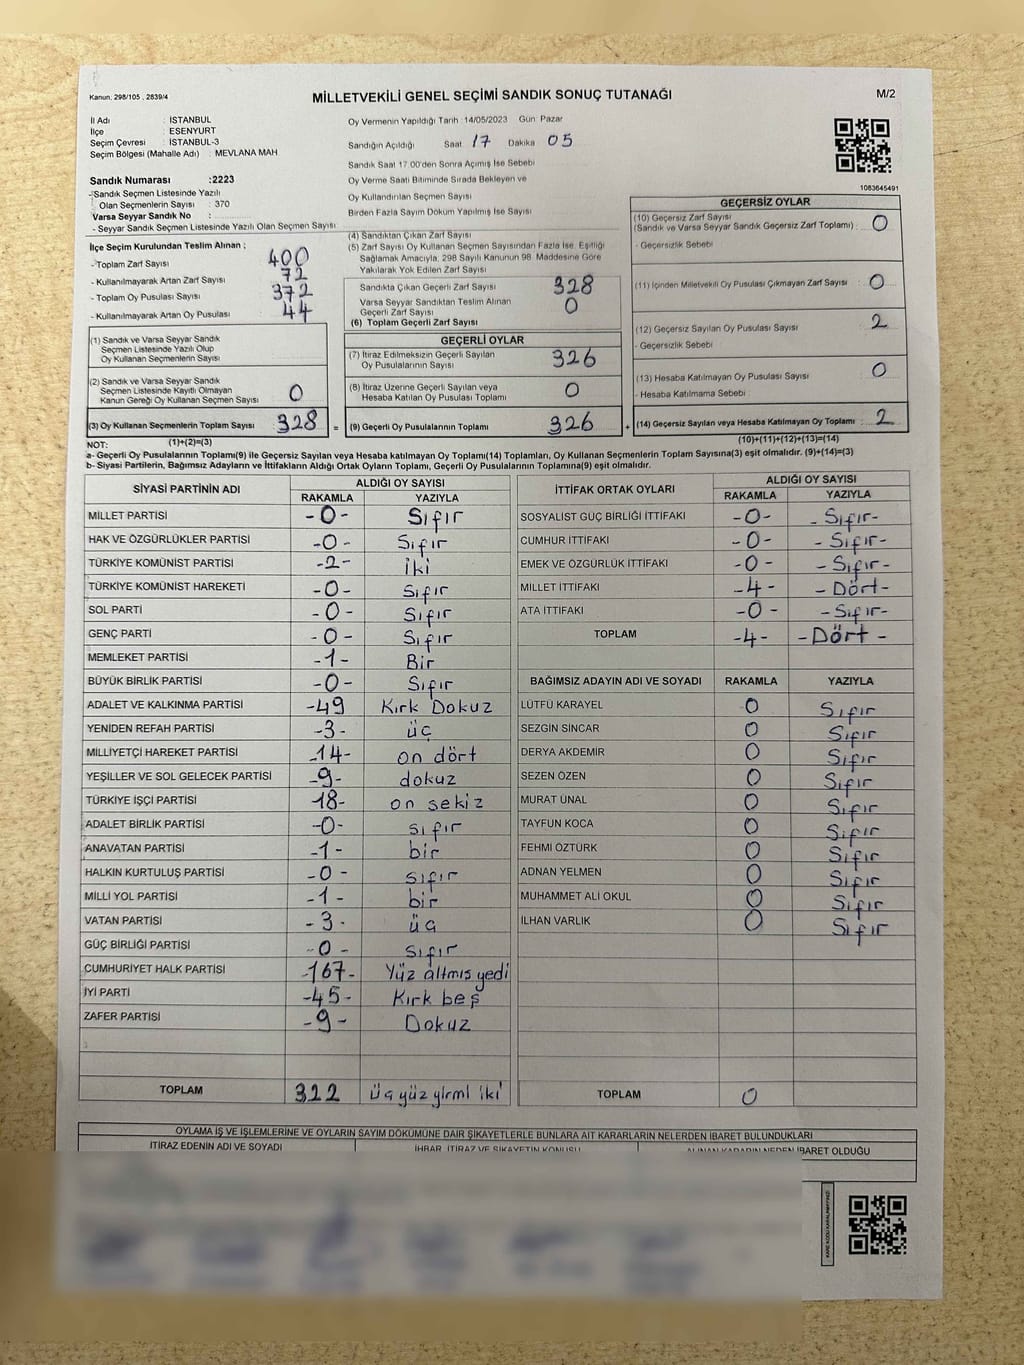 Kanun, 298/105 , 2839/4
MİLLETVEKİLİ GENEL SEÇİMİ SANDIK SONUÇ TUTANAĞI
M/2
İl Adı : İSTANBUL
İlçe : ESENYURT
Seçim Çevresi : İSTANBUL-3
Seçim Bölgesi (Mahalle Adı) : MEVLANA MAH
Sandık Numarası :2223
-Sandık Seçmen Listesinde Yazılı
Olan Seçmenlerin Sayısı : 370
Varsa Seyyar Sandık No :
- Seyyar Sandık Seçmen Listesinde Yazılı Olan Seçmen Sayısı
Oy Vermenin Yapıldığı Tarih :14/05/2023 Gün: Pazar
Sandığın Açıldığı Saat 17 Dakika 05
Sandık Saat 17.00'den Sonra Açılmış İse Sebebi
Oy Verme Saati Bitiminde Sırada Bekleyen ve
Oy Kullandırılan Seçmen Sayısı
Birden Fazla Sayım Döküm Yapılmış İse Sayısı
1083645491
İlçe Seçim Kurulundan Teslim Alınan ;
- Toplam Zarf Sayısı 400
- Kullanılmayarak Artan Zarf Sayısı 72
- Toplam Oy Pusulası Sayısı 372
- Kullanılmayarak Artan Oy Pusulası 44
(1) Sandık ve Varsa Seyyar Sandık
Seçmen Listesinde Yazılı Olup
Oy Kullanan Seçmenlerin Sayısı
(2) Sandık ve Varsa Seyyar Sandık
Seçmen Listesinde Kayıtlı Olmayan
Kanun Gereği Oy Kullanan Seçmen Sayısı 0
(3) Oy Kullanan Seçmenlerin Toplam Sayısı 328 =
(4) Sandıktan Çıkan Zarf Sayısı
(5) Zarf Sayısı Oy Kullanan Seçmen Sayısından Fazla İse, Eşitliği
Sağlamak Amacıyla, 298 Sayılı Kanunun 98. Maddesine Göre
Yakılarak Yok Edilen Zarf Sayısı
Sandıkta Çıkan Geçerli Zarf Sayısı 328
Varsa Seyyar Sandıktan Teslim Alınan
Geçerli Zarf Sayısı 0
(6) Toplam Geçerli Zarf Sayısı
GEÇERLİ OYLAR
(7) İtiraz Edilmeksizin Geçerli Sayılan
Oy Pusulalarının Sayısı 326
(8) İtiraz Üzerine Geçerli Sayılan veya
Hesaba Katılan Oy Pusulası Toplamı 0
(9) Geçerli Oy Pusulalarının Toplamı 326 +
GEÇERSİZ OYLAR
(10) Geçersiz Zarf Sayısı
(Sandık ve Varsa Seyyar Sandık Geçersiz Zarf Toplamı) : 0
- Geçersizlik Sebebi
(11) İçinden Milletvekili Oy Pusulası Çıkmayan Zarf Sayısı : 0
(12) Geçersiz Sayılan Oy Pusulası Sayısı 2
- Geçersizlik Sebebi
(13) Hesaba Katılmayan Oy Pusulası Sayısı 0
- Hesaba Katılmama Sebebi
(14) Geçersiz Sayılan veya Hesaba Katılmayan Oy Toplamı : 2
NOT: (1)+(2)=(3)
(10)+(11)+(12)+(13)=(14)
a- Geçerli Oy Pusulalarının Toplamı(9) ile Geçersiz Sayılan veya Hesaba Katılmayan Oy Toplamı(14) Toplamları, Oy Kullanan Seçmenlerin Toplam Sayısına(3) eşit olmalıdır. (9)+(14)=(3)
b- Siyasi Partilerin, Bağımsız Adayların ve İttifakların Aldığı Ortak Oyların Toplamı, Geçerli Oy Pusulalarının Toplamına(9) eşit olmalıdır.
SİYASİ PARTİNİN ADI
ALDIĞI OY SAYISI
RAKAMLA YAZIYLA
MİLLET PARTİSİ -0- Sıfır
HAK VE ÖZGÜRLÜKLER PARTİSİ -0- Sıfır
TÜRKİYE KOMÜNİST PARTİSİ -2- iki
TÜRKİYE KOMÜNİST HAREKETİ -0- Sıfır
SOL PARTİ -0- Sıfır
GENÇ PARTİ -0- Sıfır
MEMLEKET PARTİSİ -1- Bir
BÜYÜK BİRLİK PARTİSİ -0- Sıfır
ADALET VE KALKINMA PARTİSİ -49 Kırk Dokuz
YENİDEN REFAH PARTİSİ -3- üç
MİLLİYETÇİ HAREKET PARTİSİ -14- on dört
YEŞİLLER VE SOL GELECEK PARTİSİ -9- dokuz
TÜRKİYE İŞÇİ PARTİSİ -18- on sekiz
ADALET BİRLİK PARTİSİ -0- sıfır
ANAVATAN PARTİSİ -1- bir
HALKIN KURTULUŞ PARTİSİ -0- sıfır
MİLLİ YOL PARTİSİ -1- bir
VATAN PARTİSİ -3- üç
GÜÇ BİRLİĞİ PARTİSİ -0- sıfır
CUMHURİYET HALK PARTİSİ -167- Yüz altmış yedi
İYİ PARTİ -45- Kırk beş
ZAFER PARTİSİ -9- Dokuz
TOPLAM 322 üç yüz yirmi iki
İTTİFAK ORTAK OYLARI
ALDIĞI OY SAYISI
RAKAMLA YAZIYLA
SOSYALİST GÜÇ BİRLİĞİ İTTİFAKI -0- - Sıfır-
CUMHUR İTTİFAKI -0- - Sıfır-
EMEK VE ÖZGÜRLÜK İTTİFAKI -0- - Sıfır-
MİLLET İTTİFAKI -4- - Dört-
ATA İTTİFAKI -0- -Sıfır-
TOPLAM -4- -Dört -
BAĞIMSIZ ADAYIN ADI VE SOYADI RAKAMLA YAZIYLA
LÜTFÜ KARAYEL 0 Sıfır
SEZGİN SİNCAR 0 Sıfır
DERYA AKDEMİR 0 Sıfır
SEZEN ÖZEN 0 Sıfır
MURAT ÜNAL 0 Sıfır
TAYFUN KOCA 0 Sıfır
FEHMİ ÖZTÜRK 0 Sıfır
ADNAN YELMEN 0 Sıfır
MUHAMMET ALİ OKUL 0 Sıfır
İLHAN VARLIK 0 Sıfır
TOPLAM 0
OYLAMA İŞ VE İŞLEMLERİNE VE OYLARIN SAYIM DÖKÜMÜNE DAİR ŞİKAYETLERLE BUNLARA AİT KARARLARIN NELERDEN İBARET BULUNDUKLARI
İTİRAZ EDENİN ADI VE SOYADI İHBAR, İTİRAZ VE ŞİKAYETİN KONUSU ALINAN KARARIN NEDEN İBARET OLDUĞU